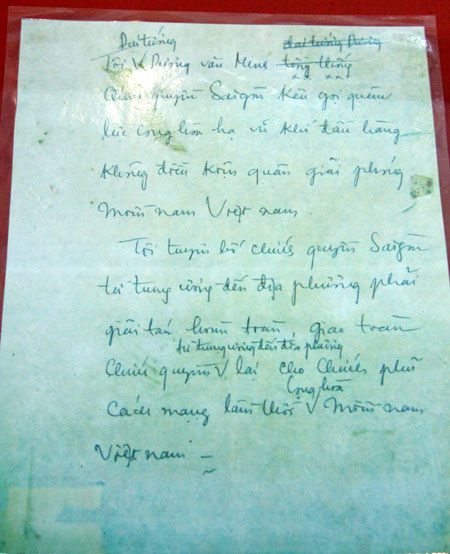 Đại tướng đại tướng Dương
Tôi V Dương văn Minh tổng thống
Chính quyền Saigòn kêu gọi quân
lực cộng hòa hạ vũ khí đầu hàng
không điều kiện quân giải phóng
miền nam Việt nam
Tôi tuyên bố chính quyền Saigòn
từ trung ương đến địa phương phải
giải tán hoàn toàn, giao toàn
từ trung ương đến địa phương
Chính quyền V lại cho Chính phủ
Cộng hoà
Cách mạng lâm thời V miền nam
Việt nam –